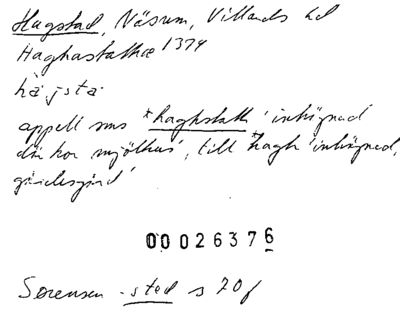 Hagstad, Näsum, Villands hd
Haghastathæ 1374
hàjsta
appell sms *haghstath 'inhägnad
där kor mjölkas', till *hagh 'inhägnad,
gärdesgård'
00026376
Sørensen -sted s 70 f